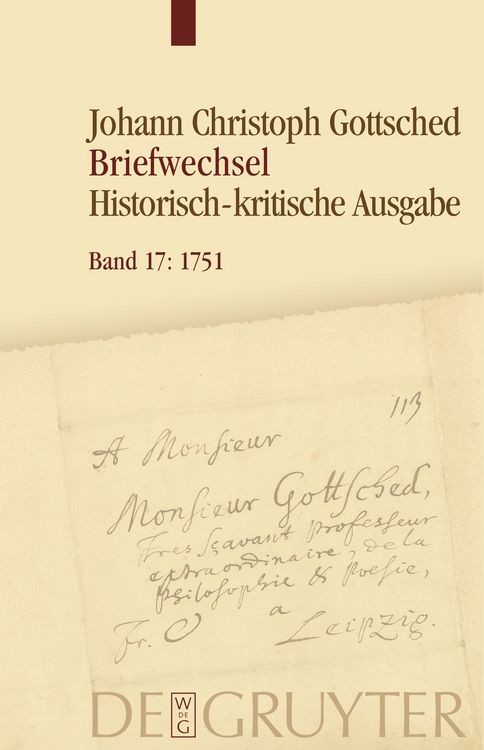 Johann Christoph Gottsched
Briefwechsel
Historisch-kritische Ausgabe
Band 17: 1751
113
A Monsieur
Monsieur Gottsched,
Tres sçavant Professeur
extraordinaire, de la
Philosophie & Poësie,
a
Fr. Leipzig.
DE GRUYTER
W
DE
G